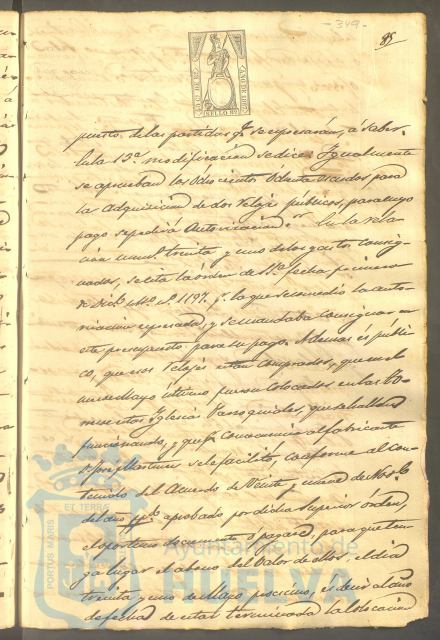 -349-
85
AÑO DE 1867
puesto de las partidas q.e se expresarán, á saber:
En la 13.a modificacion se dice: Igualmente
se aprueban los Ochocientos Ochenta escudos para
la adquisicion de dos Relojes públicos, para cuyo
pago se pedirá Autorizacion. En la rela
cion num.o treinta y uno de los gastos consig
nados, se cita la órden de fecha primero
de Dic.e n.o 1197. q.e la que concedió la auto
rizacion expresada, y se mandaba consignar en
este presupuesto para su pago. Ademas es públi
co, que los Relojes estan comprados, que en el
mes de Mayo último fueron colocados en las
Iglesias Parroquiales, que se hallan
funcionando, y que al fabricante
D. José Martinez se le facilitó, conforme al con
tenido del Acuerdo de Veinte y nueve de Nov.e
del año pp.do aprobado por dicha Superior órden,
el oportuno documento ó pagaré, para que ten
ga lugar el abono del valor de ellos, el dia
treinta y uno de Mayo procsimo, es decir al año
de fecha de estar terminada la colocacion
PORTUS MARIS
ET TERRAE
Ayuntamiento de
HUELVA